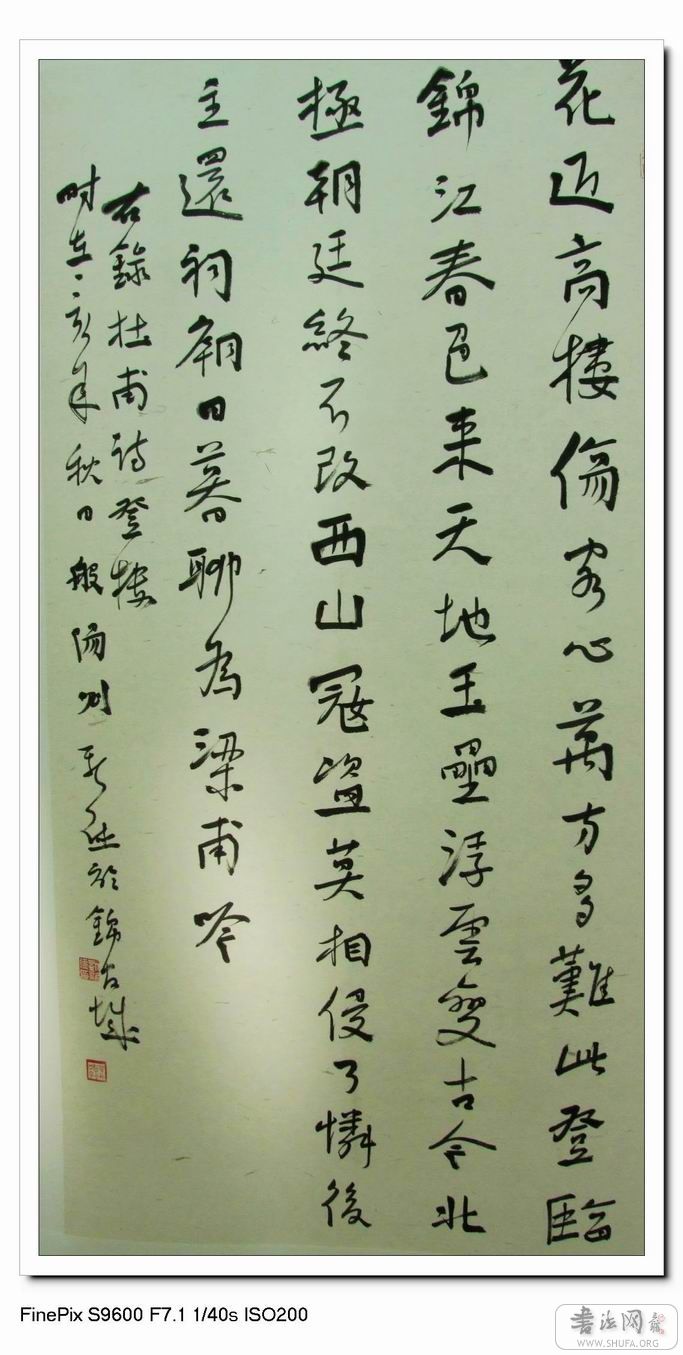 花近高樓傷客心萬方多難此登臨
錦江春色来天地玉壘浮雲變古今北
極朝廷終不改西山冦盗莫相侵可憐後
主還祠廟日暮聊為梁甫吟
右錄杜甫詩登樓
时在丁亥年秋日般陽刘於錦古城
FinePix S9600 F7.1 1/40s ISO200
書法网
WWW.SHUFA.ORG